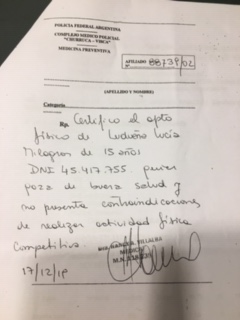 POLICIA FEDERAL ARGENTINA
COMPLEJO MEDICO POLICIAL
"CHURRUCA - VISCA"
MEDICINA PREVENTIVA
AFILIADO
Nº
88739/02
(APELLIDO Y NOMBRE)
Categoría
Rp. Certifico el apto
físico de Ludueña Lucía
Milagros de 15 años
DNI 45.417.755 quien
goza de buena salud y
no presenta contraindicaciones
de realizar actividad física
competitiva.
VILLALBA
MEDICO
M.N.
17/12/19